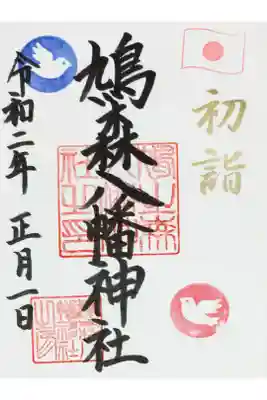 初詣
鳩森八幡神社
令和二年 正月一日